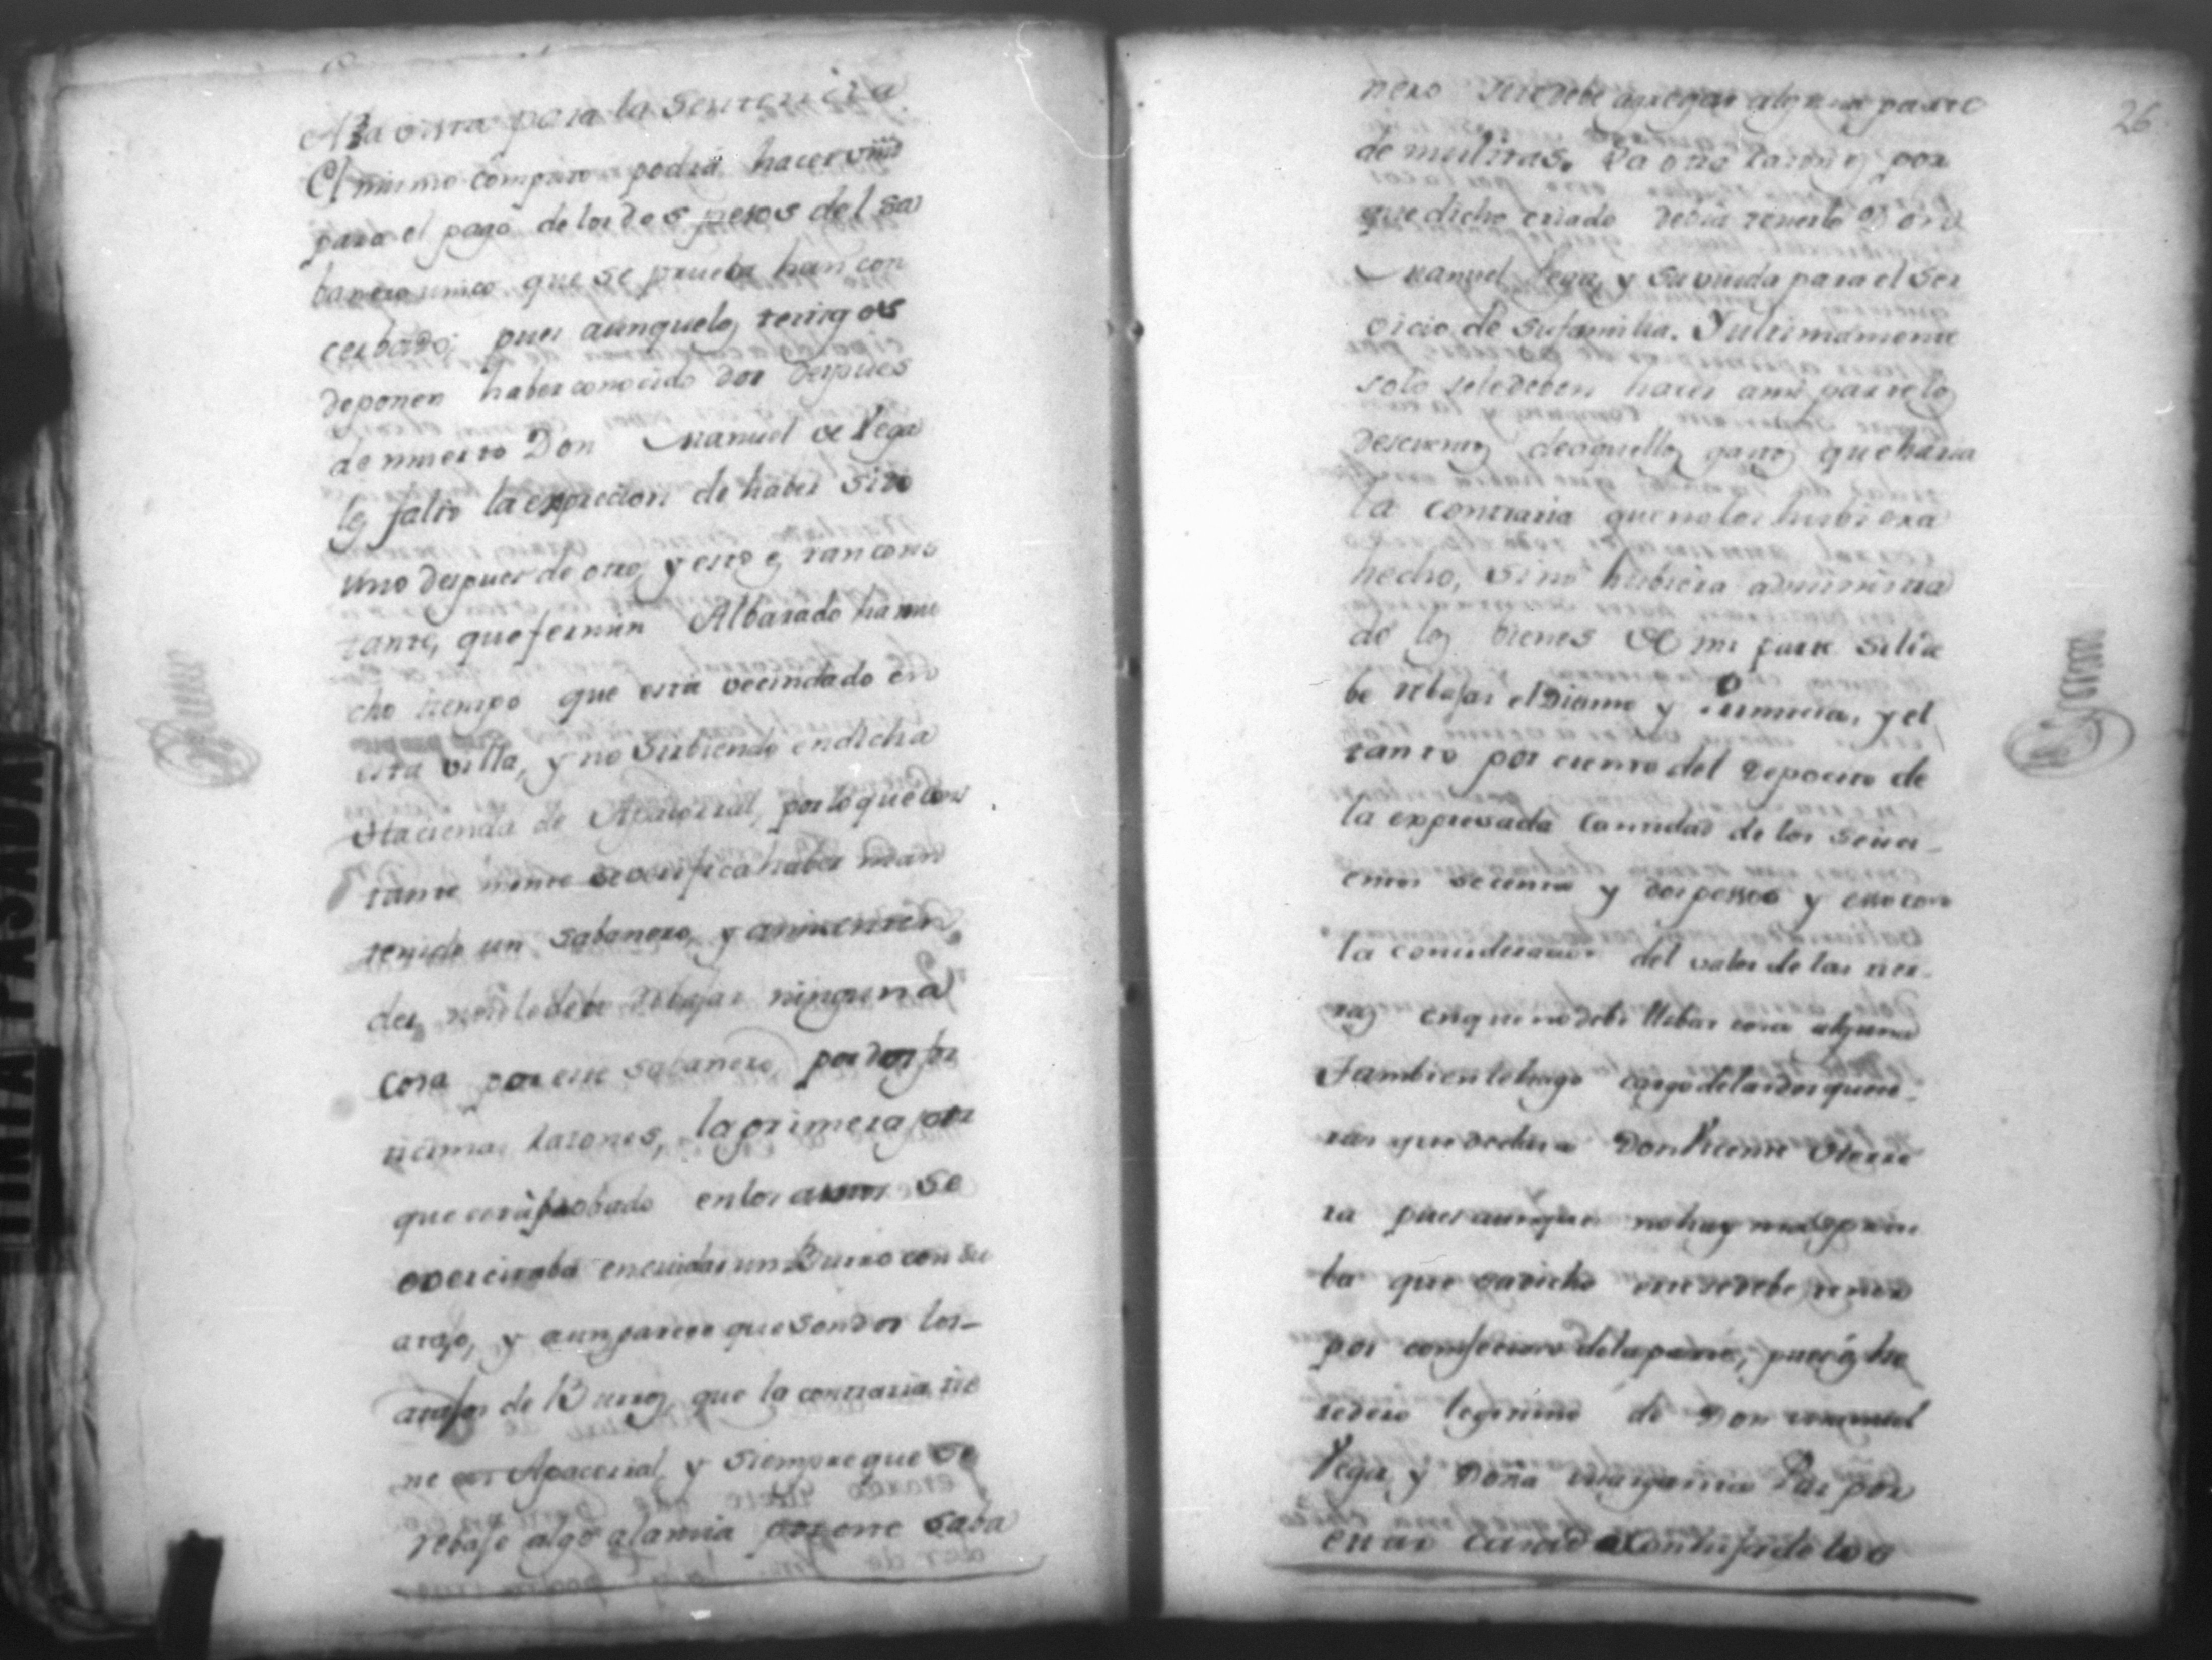 A la vista para la sentencia
El mismo computo podra hacer vmd
para el pago de los dos pesos del sa
banero unico que se prueba han con
cerbado; pues aunque los testigos
deponen haber conocido dos despues
de muerto Don Manuel de Vega
les falto la exprecion de haber sido
uno despues de otro, y esto es tan cons
tante, que fermin Albarado ha mu
cho tiempo que esta vecindado en
esta villa, y no subiendo en dicha
Hacienda de Apacorral, por lo que cons
tante mente se verifica haber man
tenido un sabanero, y
des, no se le debe rebajar ninguna
cosa por este sabanero, por dos for
ticimas razones, la primera por
que esta probado en los autos se
exercitaba en cuidar un Burro con su
atajo, y aun parece que son dos los
atajos de Burros, que la contraria tie
ne en Apacorral, y siempre que se
rebaje algo a la mia por este saba
26
nero se le debe agregar alguna parte
de mulitas. La otra razon es por
que dicho criado debia tenerlo Don
Manuel Vega, y su viuda para el ser
vicio de su familia. Y ultimamente
solo se le deben hacer a mi parte los
descuentos de aquellos gastos que haria
la contraria que no los hubiera
hecho, si no hubiera administra
do los bienes de mi parte se le de
be rebajar el Diesmo y Primicia, y el
tanto por ciento del depocito de
la expresada cantidad de los setec
entos setenta y dos pessos y esto con
la concideracion del valor de las tier
ras en que no debe llebar cosa alguna
Tambien le hago cargo de las dos
que declara Don Vicente Herre
ra pues aunque no hay mas prue
ba que su dicho este se debe tener
por confecion de la parte, pues es he
redero legitimo de Don Manuel
Vega y Doña Margarita Paz por
estar casado con hija de los